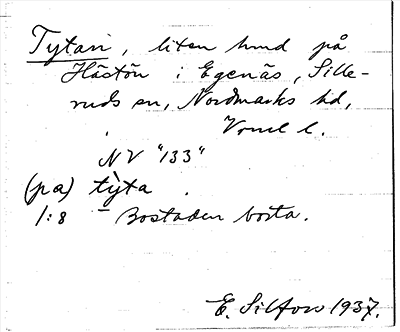 Tytari, liten hmd på
Hästön i Egenäs, Sille-
ruds sn, Nordmarks hd,
Vrml l.
NV "133"
(pa) tỳta
1:8 – Bostaden borta.
E. Silfors 1937.